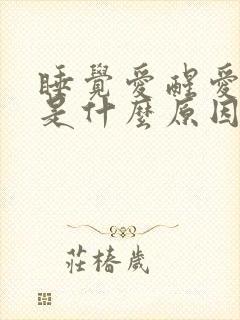 睡覺愛醒愛
是什麼原因
莊椿歲